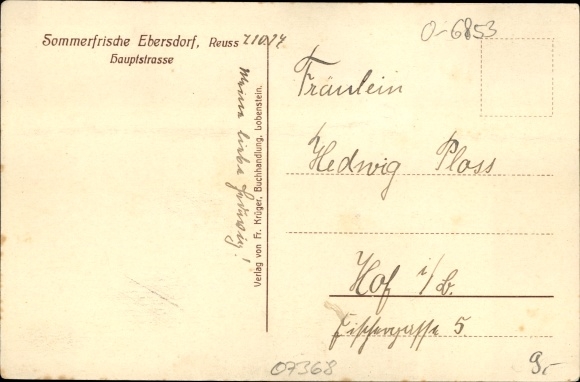 Sommerfrische Ebersdorf, Reuss 7.10.14
Hauptstrasse
Meine liebe Hedwig!
Verlag von Fr. Krüger, Buchhandlung, Lobenstein.
O-6853
Fräulein
Hedwig Ploss
Hof i/B.
Fischergasse 5.
07368
9,-